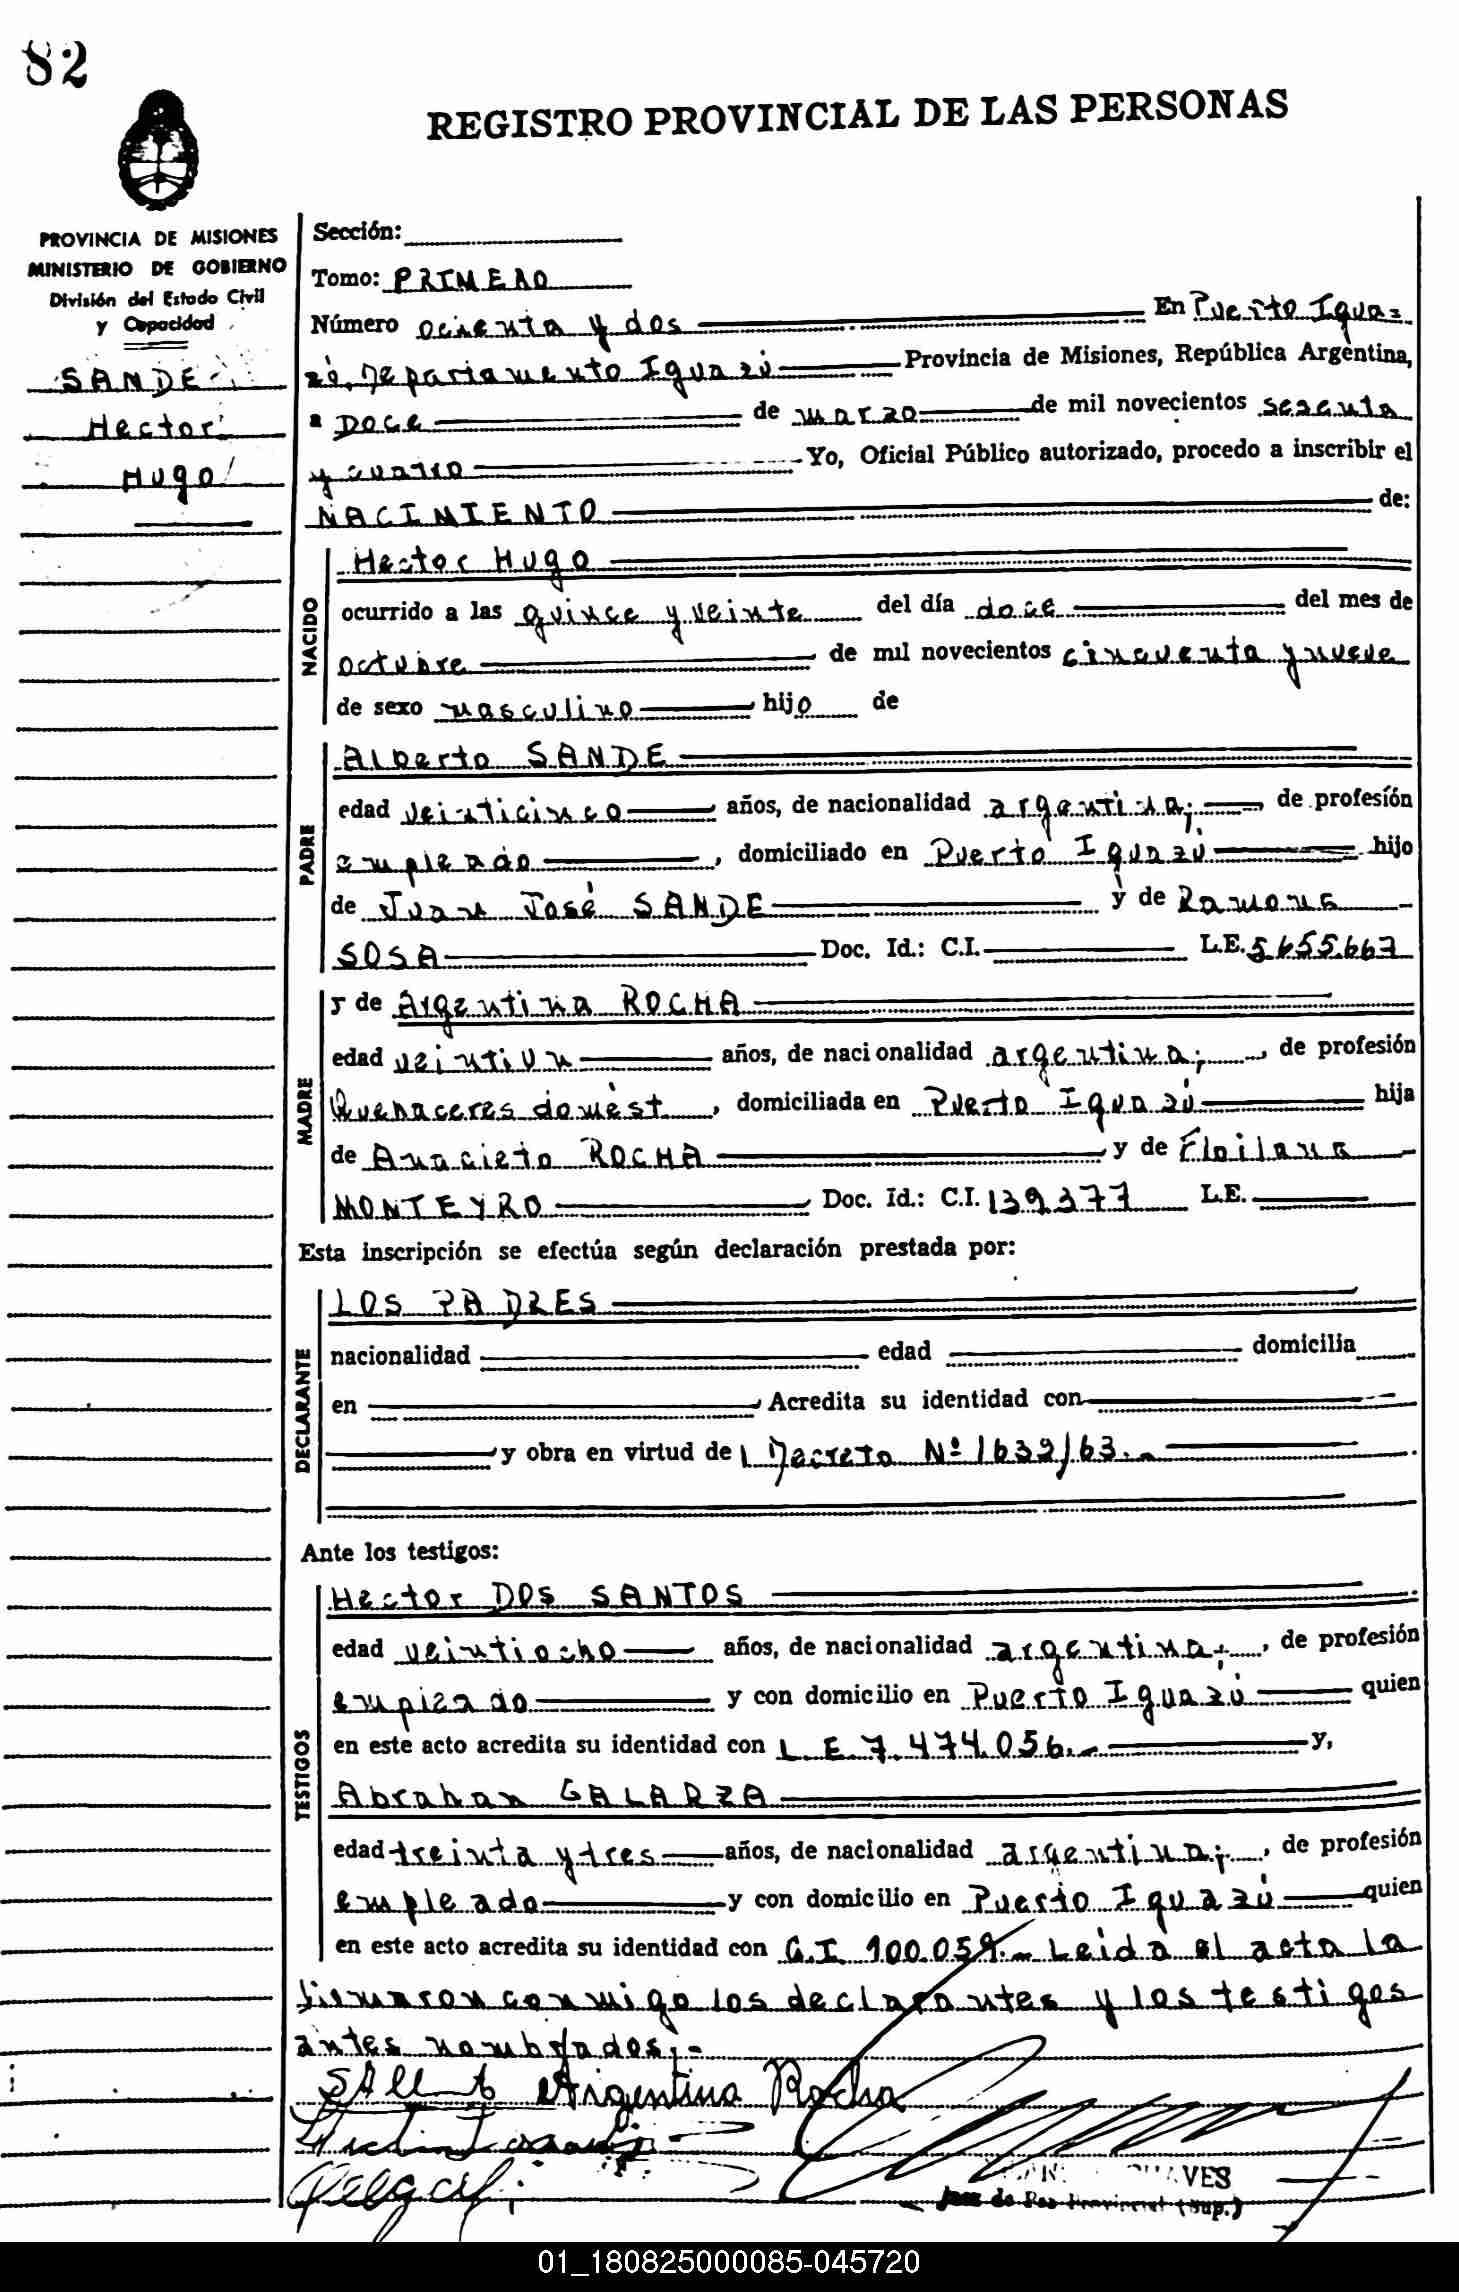 82
REGISTRO PROVINCIAL DE LAS PERSONAS
PROVINCIA DE MISIONES
MINISTERIO DE GOBIERNO
División del Estado Civil
y Capacidad
SANDE
Hector
Hugo
Sección:
Tomo: PRIMERO
Número ochenta y dos En Puerto Igua=
zú, Departamento Iguazú Provincia de Misiones, República Argentina,
a DOCE de marzo de mil novecientos sesenta
y cuatro Yo, Oficial Público autorizado, procedo a inscribir el
NACIMIENTO de:
NACIDO
Hector Hugo
ocurrido a las quince y veinte del día doce del mes de
octubre de mil novecientos cincuenta y nueve
de sexo masculino hijo de
PADRE
Alberto SANDE
edad veinticinco años, de nacionalidad argentina; de profesión
empleado, domiciliado en Puerto Iguazú hijo
de Juan José SANDE y de Ramona
SOSA Doc. Id.: C.I. L.E. 5.655.667
MADRE
y de Argentina ROCHA
edad veintiun años, de nacionalidad argentina;, de profesión
Quehaceres domést, domiciliada en Puerto Iguazú hija
de Anacleto ROCHA y de Floilana
MONTEYRO Doc. Id.: C.I. 139.377 L.E.
Esta inscripción se efectúa según declaración prestada por:
DECLARANTE
LOS PADRES
nacionalidad edad domicilia
en Acredita su identidad con
y obra en virtud de l Decreto Nº 1639/63.-
Ante los testigos:
TESTIGOS
Hector DOS SANTOS
edad veintiocho años, de nacionalidad argentina;, de profesión
empleado y con domicilio en Puerto Iguazú quien
en este acto acredita su identidad con L.E. 7.474.056.- y,
Abrahan GALARZA
edad treinta y tres años, de nacionalidad argentina;, de profesión
empleado y con domicilio en Puerto Iguazú quien
en este acto acredita su identidad con C.I. 100.059.- Leida el acta la
firmaron conmigo los declarantes y los testigos
antes nombrados;-
Argentina Rocha
Juez de Paz Provincial (Sup.)
01_180825000085-045720